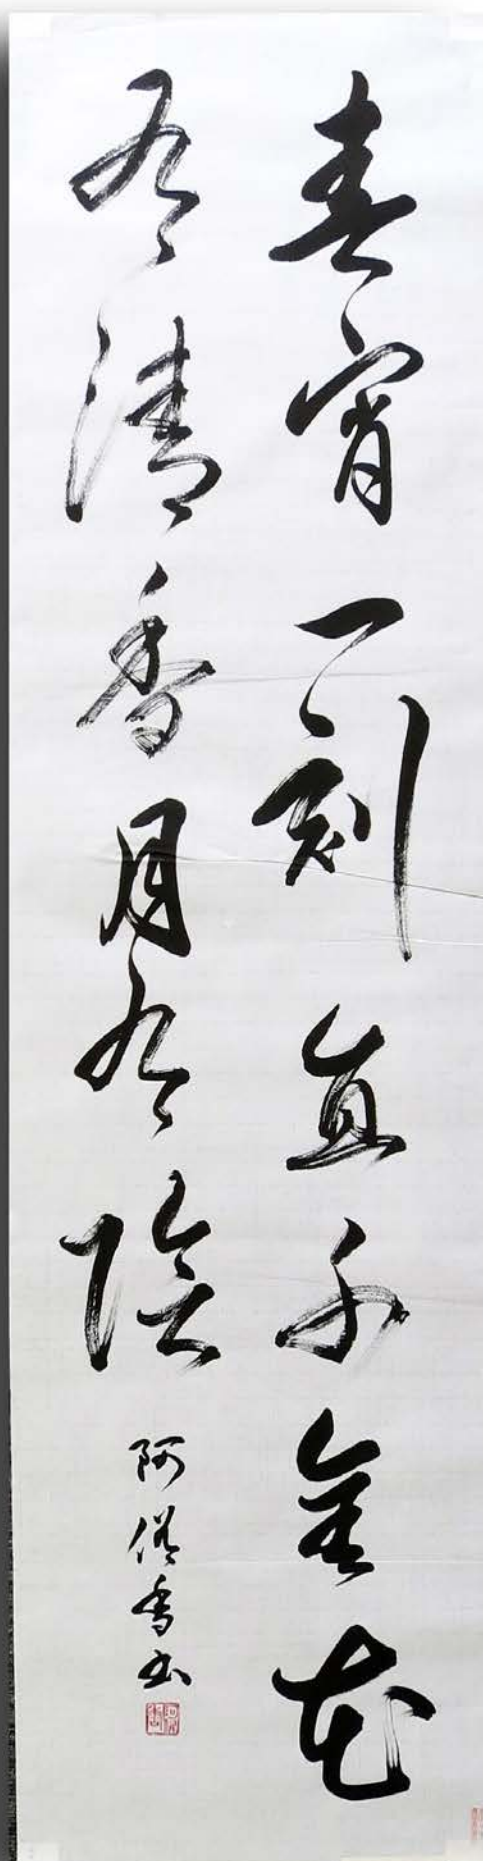 春宵一刻直千金花
有清香月有陰
阿俗香书